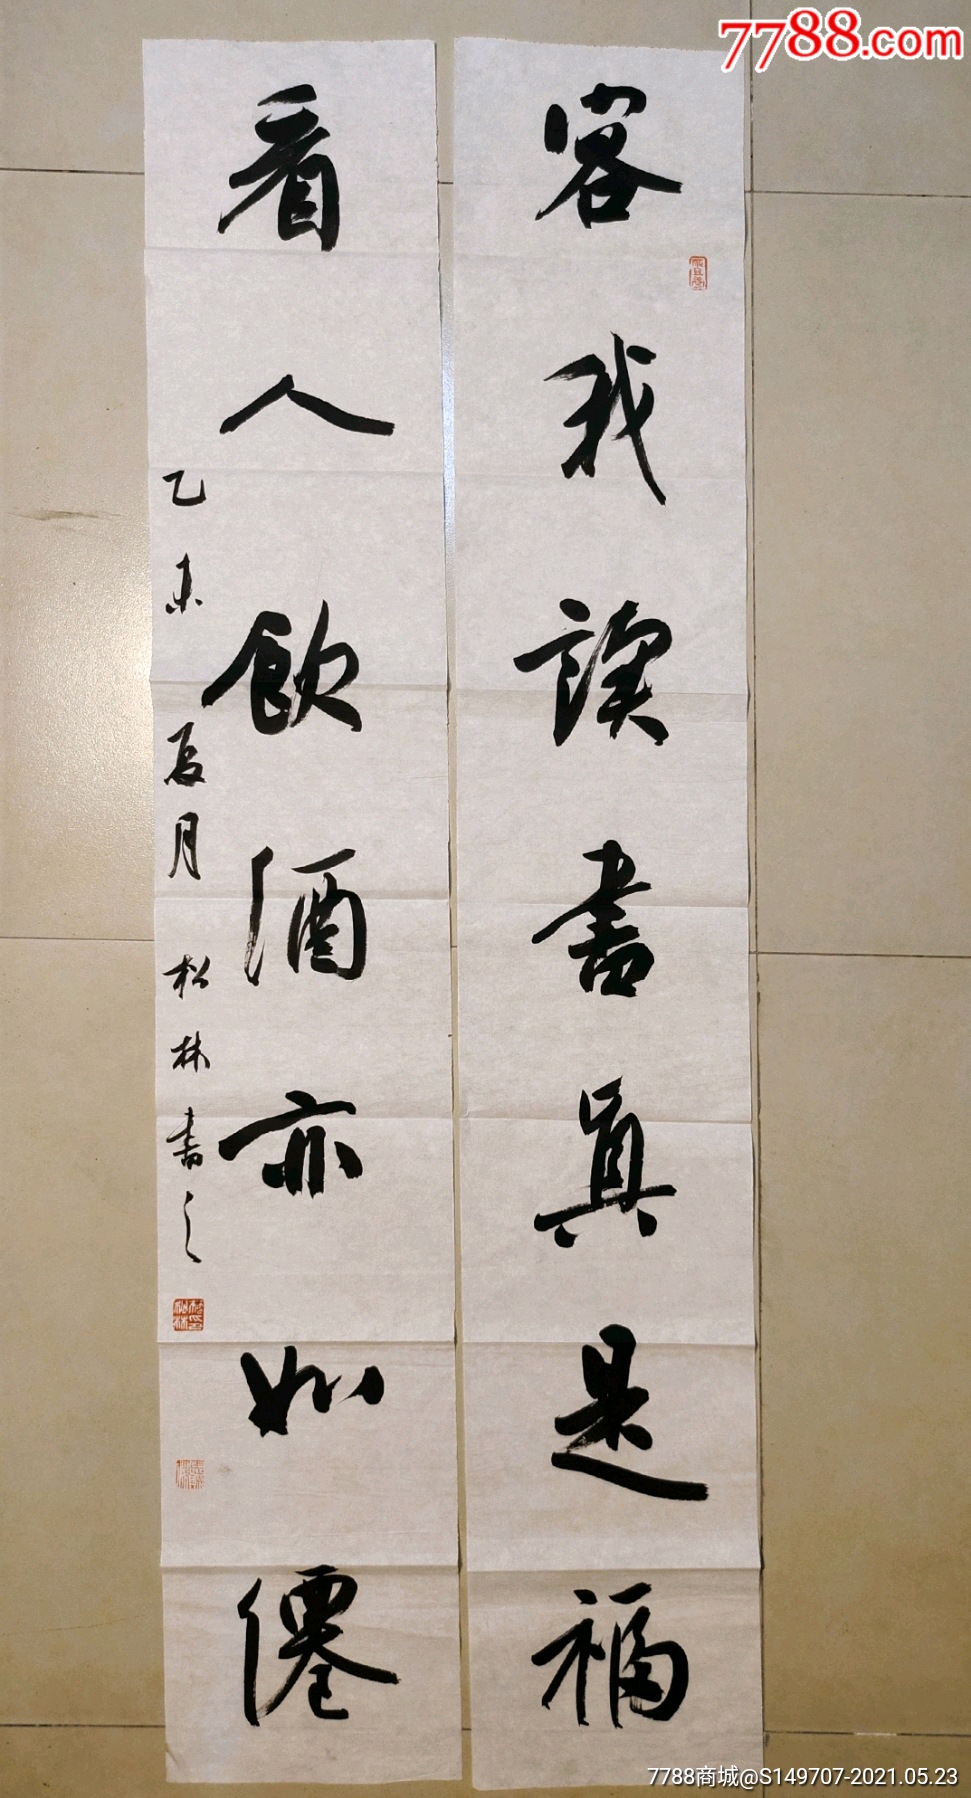 7788.com
容我读書真是福
看人飲酒亦如僊
乙未夏月松林書之
7788商城@S149707-2021.05.23